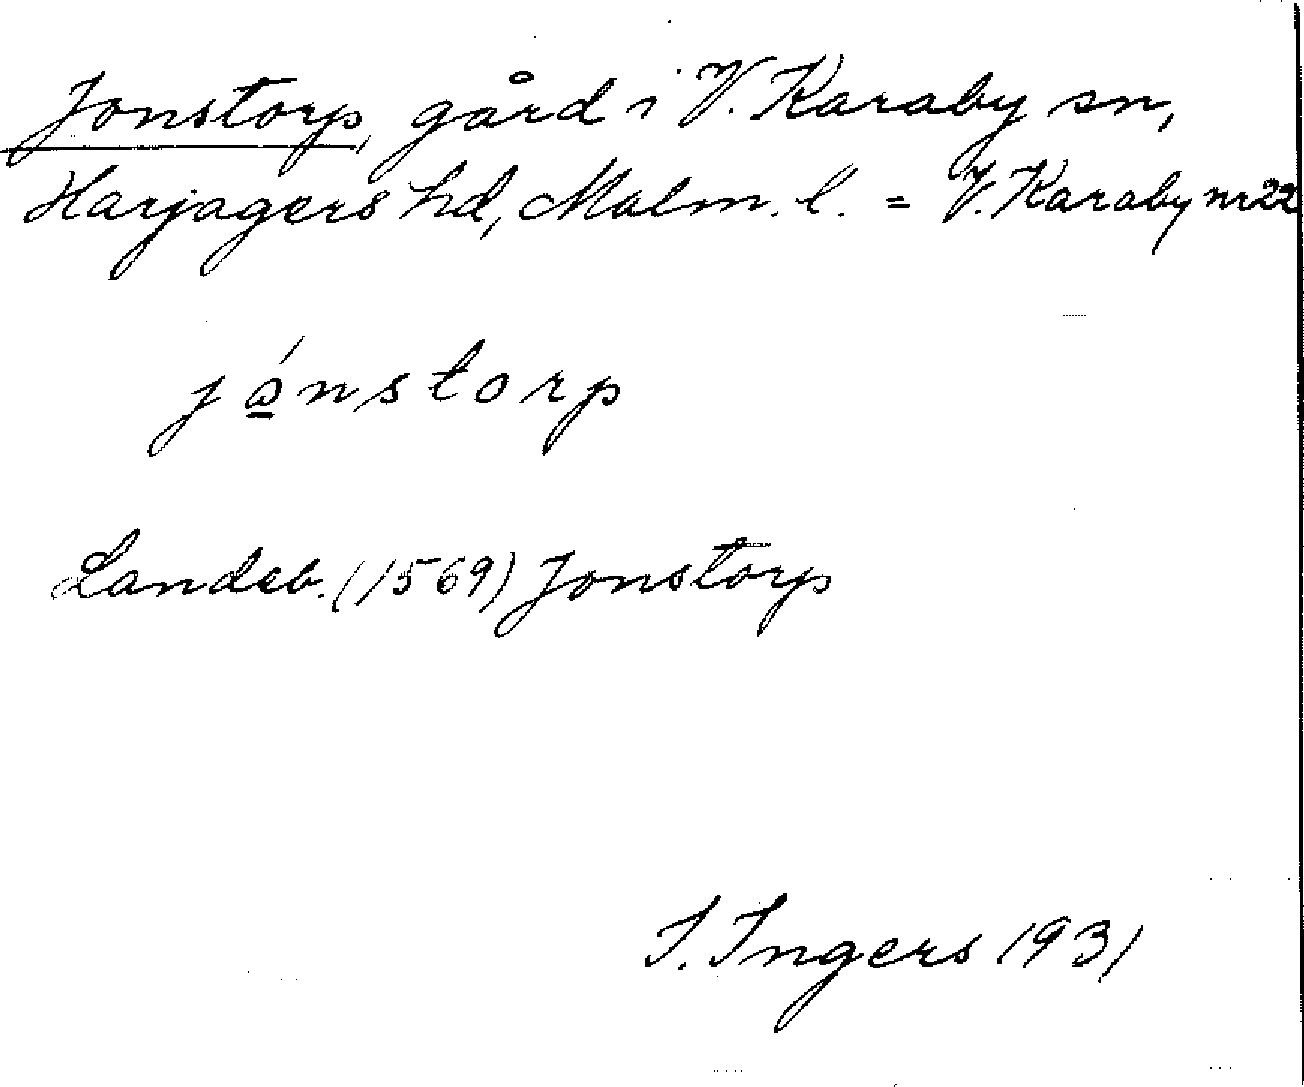 Jonstorp, gård i V. Karaby sn,
Harjagers hd, Malm. l. = V. Karaby nr 22
jó̲nstorp
Landeb. (1569) Jonstorp
I. Ingers 1931